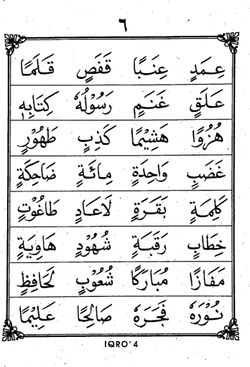 ٦
عِمَدٍ عِنَبًا قَفَصٍ قَلَمًا
عَلَقٍ غَنَمٍ رَسُوْلُهٗ كِتَابِهٖ
هُزُوًا هَشِيْمًا كَذِبٍ طَهُوْرٍ
غَضَبٍ وَاحِدَةٍ مِائَةٍ ضَاحِكَةٍ
كَلِمَةٍ بَقَرَةٍ لَاعَادٍ طَاغُوْتٍ
خِطَابٍ رَقَبَةٍ شُهُوْدٍ هَاوِيَةٍ
مَفَازًا مُبَارَكًا شُعُوْبٍ لَحَافِظٍ
نُوْرَهٗ فَجَرَهٗ صَالِحًا عَلِيْمًا
IQRO' 4